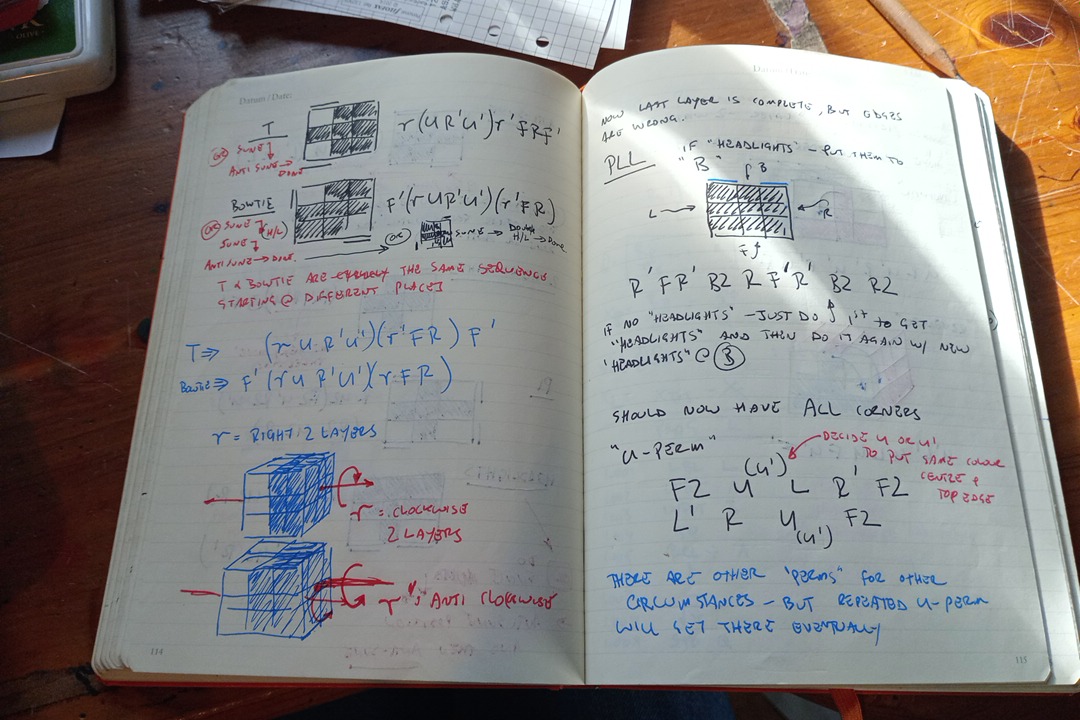 Datum / Date:
T
r(U R'U')r'FRF'
OR SUNE
ANTI SUNE → DONE
BOWTIE
F'(r U R'U')(r'FR)
OR SUNE
H/L
SUNE
ANTI SUNE → DONE.
OR
SUNE → DOUBLE H/L → DONE
T & BOWTIE ARE THE SAME SEQUENCE.
STARTING @ DIFFERENT PLACES
T ⇒ (r U R'U')(r'FR) F'
BOWTIE ⇒ F'(r U R'U')(r FR)
r = RIGHT 2 LAYERS
r = CLOCKWISE
2 LAYERS
r' = ANTI CLOCKWISE
114
Datum / Date:
NOW LAST LAYER IS COMPLETE, BUT EDGES
ARE WRONG.
PLL
IF "HEADLIGHTS" - PUT THEM TO
"B"
B
L →
R
F
R' F R' B2 R F' R' B2 R2
IF NO "HEADLIGHTS" - JUST DO 1ST TO GET
"HEADLIGHTS" AND THEN DO IT AGAIN W/ NEW
"HEADLIGHTS" @ B
SHOULD NOW HAVE ALL CORNERS
"U-PERM"
DECIDE U OR U'
TO PUT SAME COLOUR
CENTRE &
TOP EDGE
(U')
F2 U L R' F2
L' R U F2
(U')
THERE ARE OTHER "PERMS" FOR OTHER
CIRCUMSTANCES - BUT REPEATED U-PERM
WILL GET THERE EVENTUALLY
115